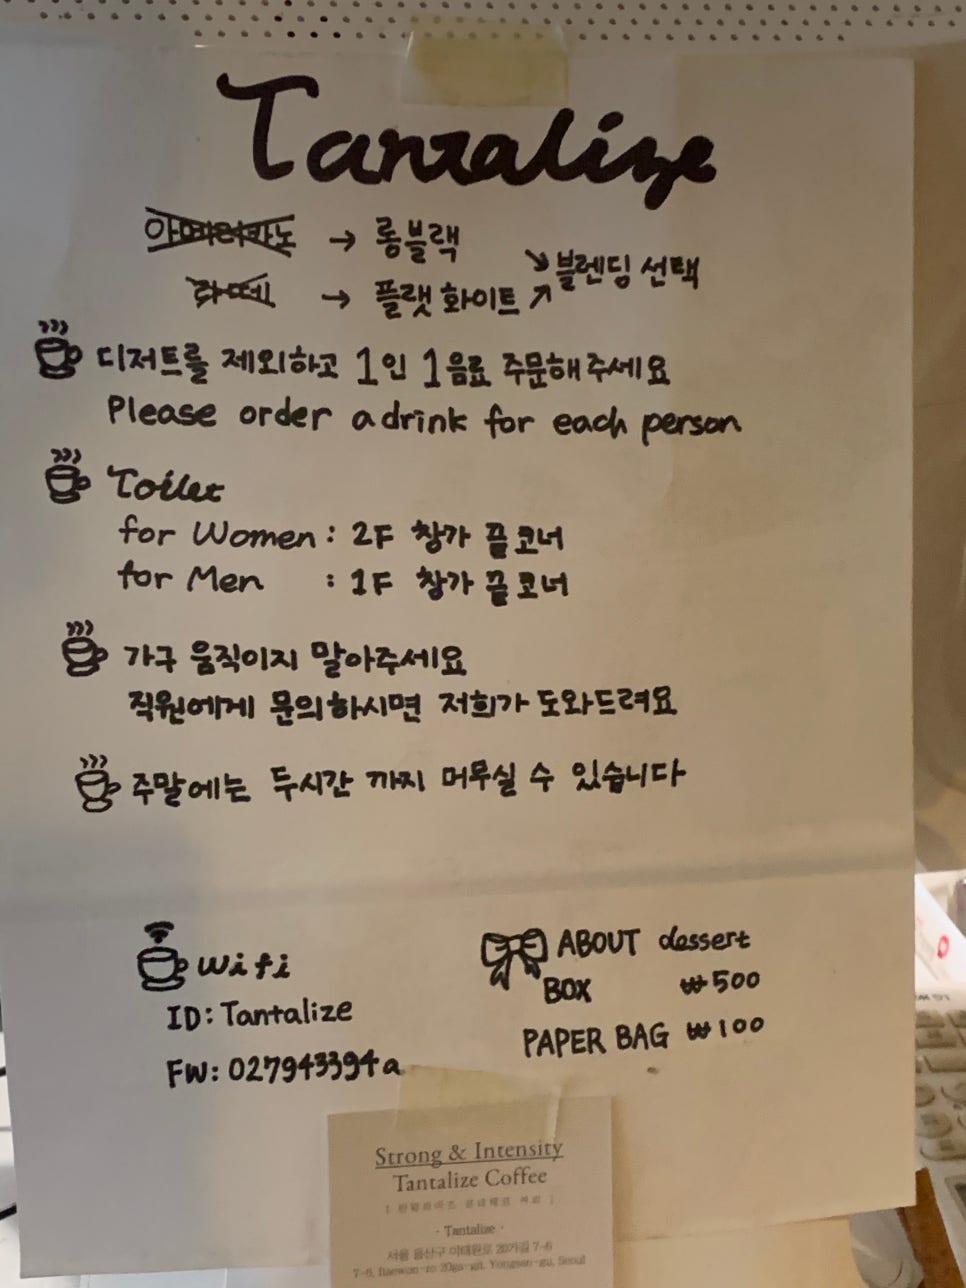 Tantalize
아메리카노 → 롱블랙
라떼 → 플랫화이트
↘ 블렌딩 선택 ↗
디저트를 제외하고 1인 1음료 주문해주세요
Please order a drink for each person
Toilet
for Women : 2F 창가 끝 코너
for Men : 1F 창가 끝 코너
가구 움직이지 말아주세요
직원에게 문의하시면 저희가 도와드려요
주말에는 두시간 까지 머무실 수 있습니다
wifi
ID: Tantalize
PW: 027943394a
ABOUT dessert
BOX ₩500
PAPER BAG ₩100
Strong & Intensity
Tantalize Coffee
· Tantalize ·
서울 용산구 이태원로 20가길 7-6
7-6, Itaewon-ro 20ga-gil, Yongsan-gu, Seoul